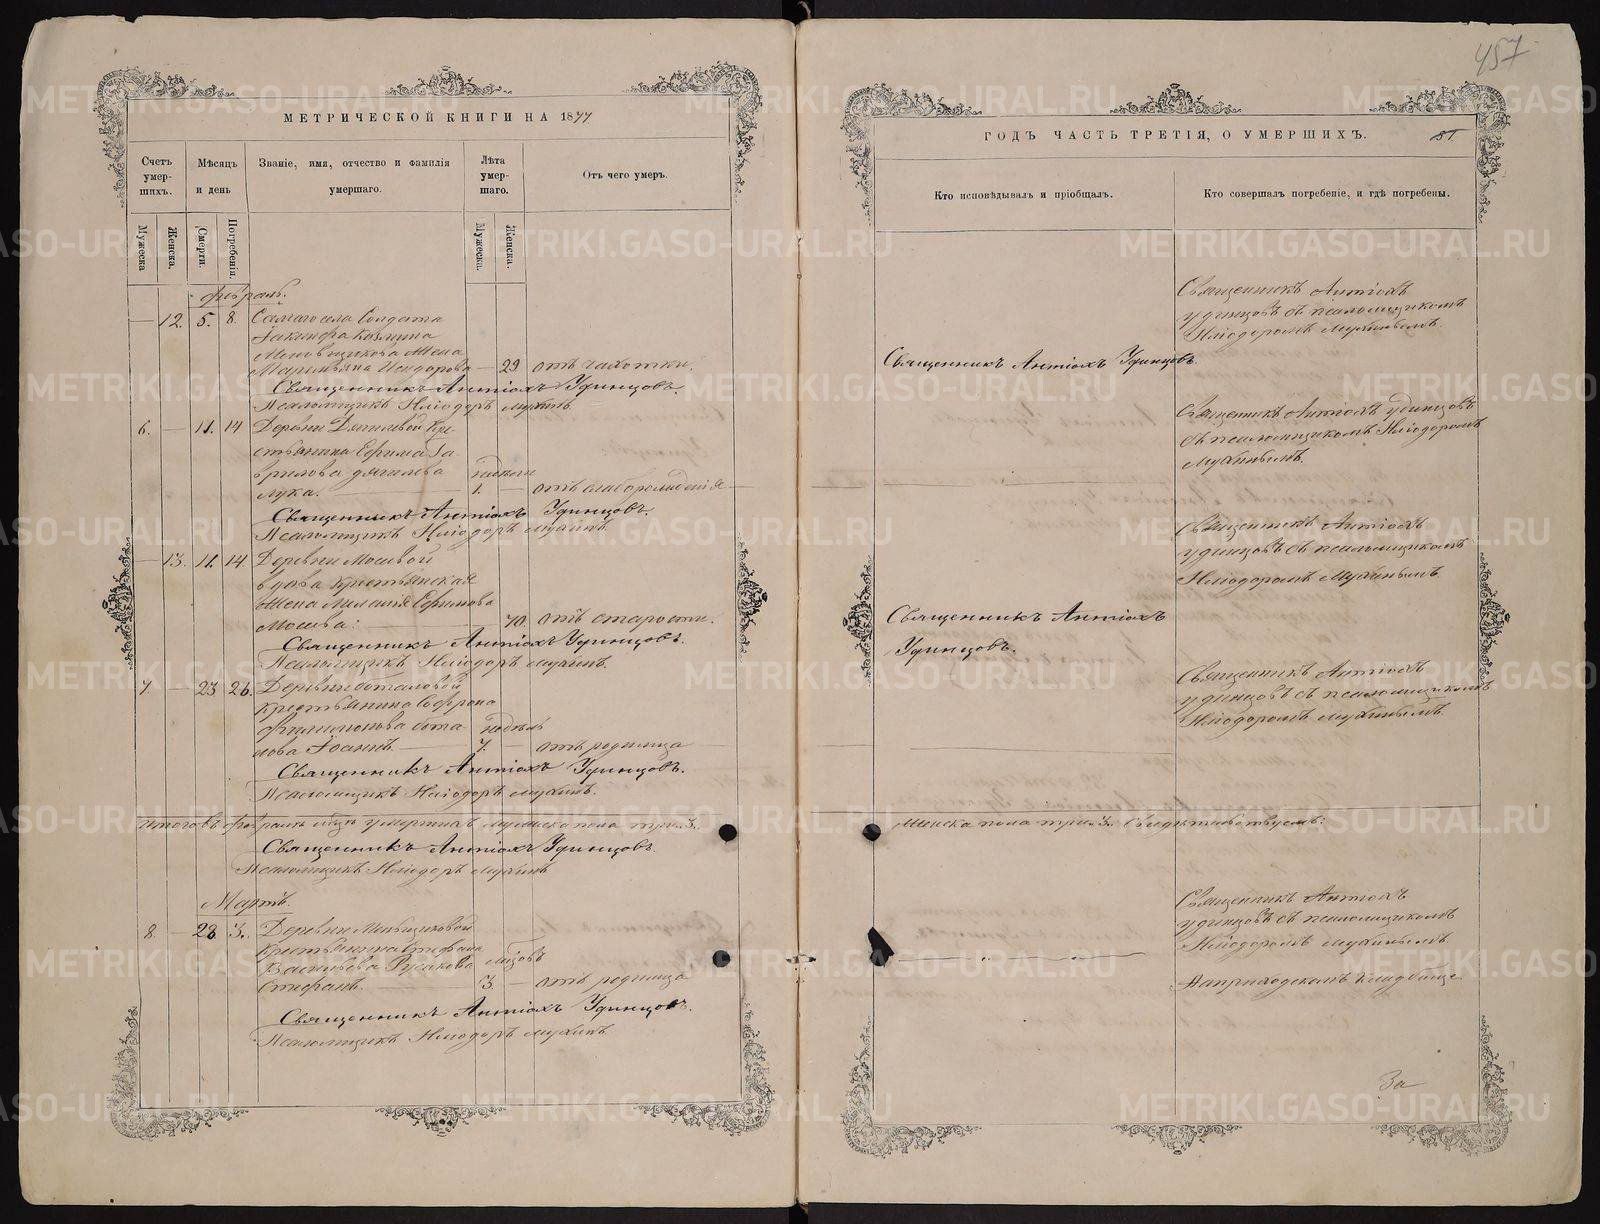 457
МЕТРИЧЕСКОЙ КНИГИ НА 1877
Счетъ умер-шихъ.
Мѣсяцъ и день
Званіе, имя, отчество и фамилія умершаго.
Лѣта умер-шаго.
Отъ чего умеръ.
Мужеска
Женска.
Смерти.
Погребенія.
Мужеска.
Женска.
Февраль.
— 12. 5. 8. Самаго села Солдата
Іакинфа Козмина
Меновщикова Жена
Исидорова — 29 отъ чахотки.
Священникъ Антіохъ Удинцовъ.
Псаломщикъ Иліодоръ Мухинъ.
6. — 11. 14 Деревни Дягилевой Кре-
стьянина Ефима Га-
врилова Дягилева недѣли
Лука. 1. — отъ слаборожденія
Священникъ Антіохъ Удинцовъ.
Псаломщикъ Иліодоръ Мухинъ.
— 13. 11. 14. Деревни Мосевой
вдова Крестьянская
Жена Ефимова
Мосева: 70. отъ старости.
Священникъ Антіохъ Удинцовъ.
Псаломщикъ Иліодоръ Мухинъ.
7. — 23 26. Деревни Боталовой
Крестьянина Софрона
Филимонова Бота- недѣль
лова Іоаннъ. 7. — отъ родимца
Священникъ Антіохъ Удинцовъ.
Псаломщикъ Иліодоръ Мухинъ.
Итого въ Февралѣ мѣсяцѣ умершихъ мужеска пола три. 3.
Священникъ Антіохъ Удинцовъ.
Псаломщикъ Иліодоръ Мухинъ
Мартъ.
8. — 28. 3. Деревни Меньщиковой
Крестьянина Стефана
Васильева Русакова
Стефанъ. 3. — отъ родимца
Священникъ Антіохъ Удинцовъ.
Псаломщикъ Иліодоръ Мухинъ
ГОДЪ ЧАСТЬ ТРЕТІЯ, О УМЕРШИХЪ.
Кто исповѣдывалъ и пріобщалъ.
Кто совершалъ погребеніе, и гдѣ погребены.
Священникъ Антіохъ
Удинцовъ съ псаломщикомъ
Иліодоромъ Мухинымъ.
Священникъ Антіохъ Удинцовъ.
Священникъ Антіохъ Удинцовъ
съ псаломщикомъ Иліодоромъ
Мухинымъ.
Священникъ Антіохъ
Удинцовъ съ псаломщикомъ
Иліодоромъ Мухинымъ
Священникъ Антіохъ
Удинцовъ.
Священникъ Антіохъ
Удинцовъ съ псаломщикомъ
Иліодоромъ Мухинымъ
Женска пола три. 3. Свидѣтельствуемъ:
Священникъ Антіохъ
Удинцовъ съ псаломщикомъ
Иліодоромъ Мухинымъ
На приходскомъ кладбище
За
METRIKI.GASO-URAL.RU